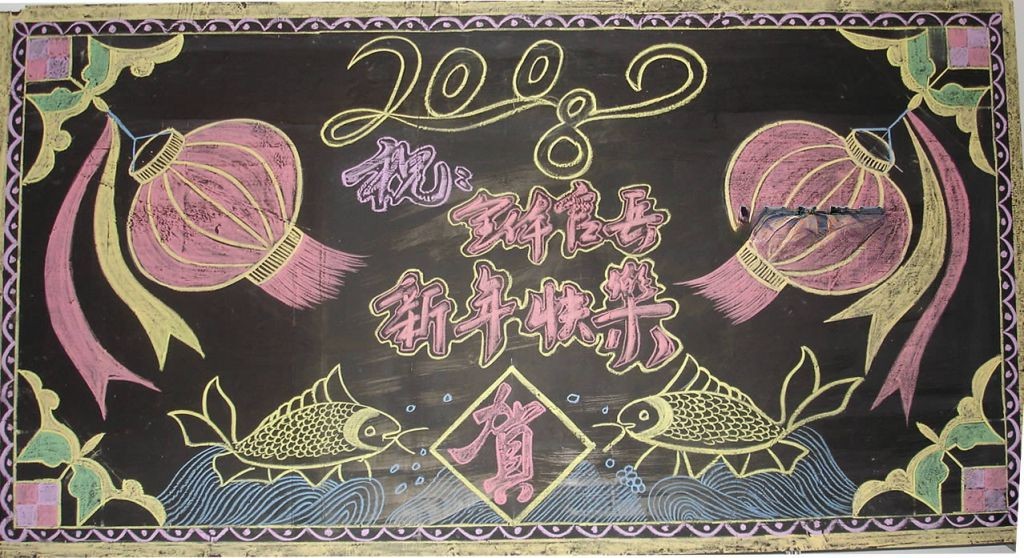 2008
祝:
全体官兵
新年快樂
賀